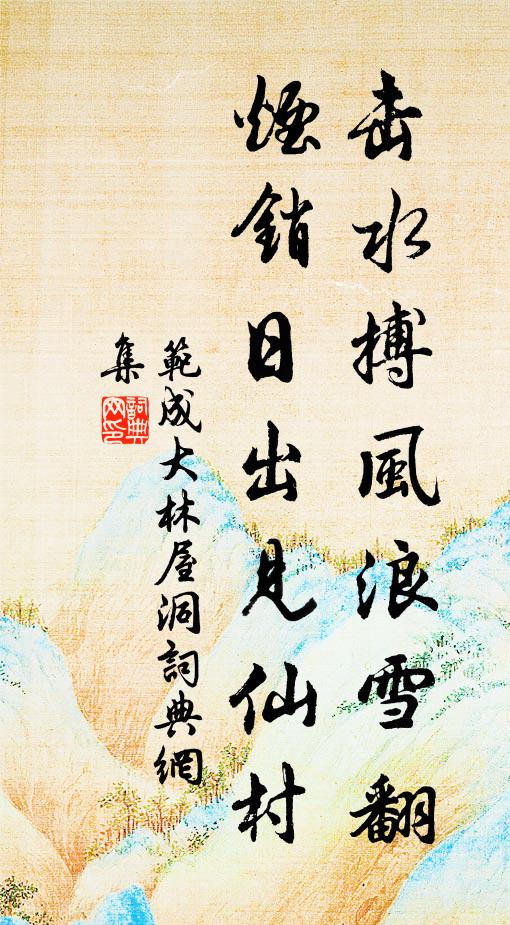 击水搏風浪雪翻
煙銷日出見仙村
範成大林屋洞詞典網
集
詞典網印